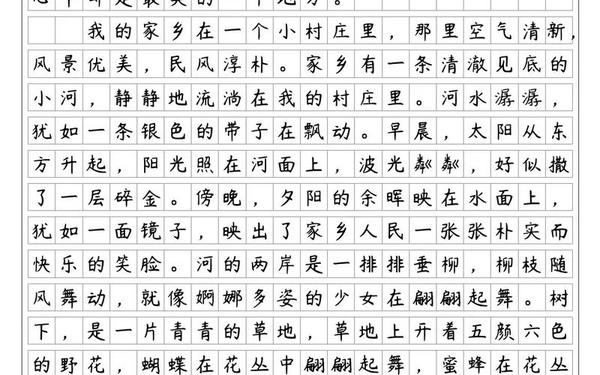 我的家乡在一个小村庄里，那里空气清新，
风景优美，民风淳朴。家乡有一条清澈见底的
小河，静静地流淌在我的村庄里。河水潺潺，
犹如一条银色的带子在飘动。早晨，太阳从东
方升起，阳光照在河面上，波光粼粼，好似撒
了一层碎金。傍晚，夕阳的余晖映在水面上，
犹如一面镜子，映出了家乡人民一张张朴实而
快乐的笑脸。河的两岸是一排排垂柳，柳枝随
风舞动，就像婀娜多姿的少女在翩翩起舞。树
下，是一片青青的草地，草地上开着五颜六色
的野花，蝴蝶在花丛中翩翩起舞，蜜蜂在花丛